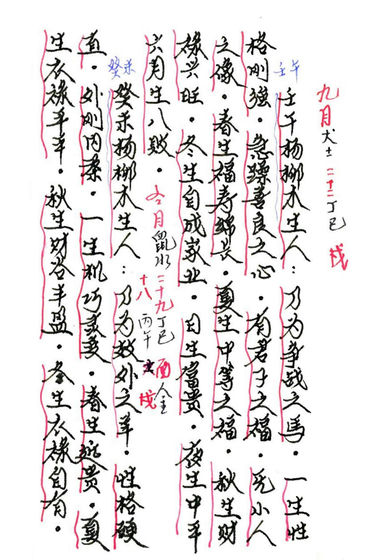 九月 犬土 二十二 丁巳
壬午
壬午杨柳木生人：乃为争战之马。一生性
格刚强。急躁喜良之心。有君子之福。无小人
之像。春生福寿绵长。夏生中等之福。秋生财
禄兴旺。冬生自成家业。日生富贵。夜生中平
六月生八败。
冬月 鼠水 二十九 丁巳 酉 金
十八 丙午
癸未
癸未杨柳木生人：乃为外之羊。性格硬
直。外刚内柔。一生机巧多变。春生远贵。夏
生衣禄平平。秋生财谷丰盈。冬生衣禄自有。